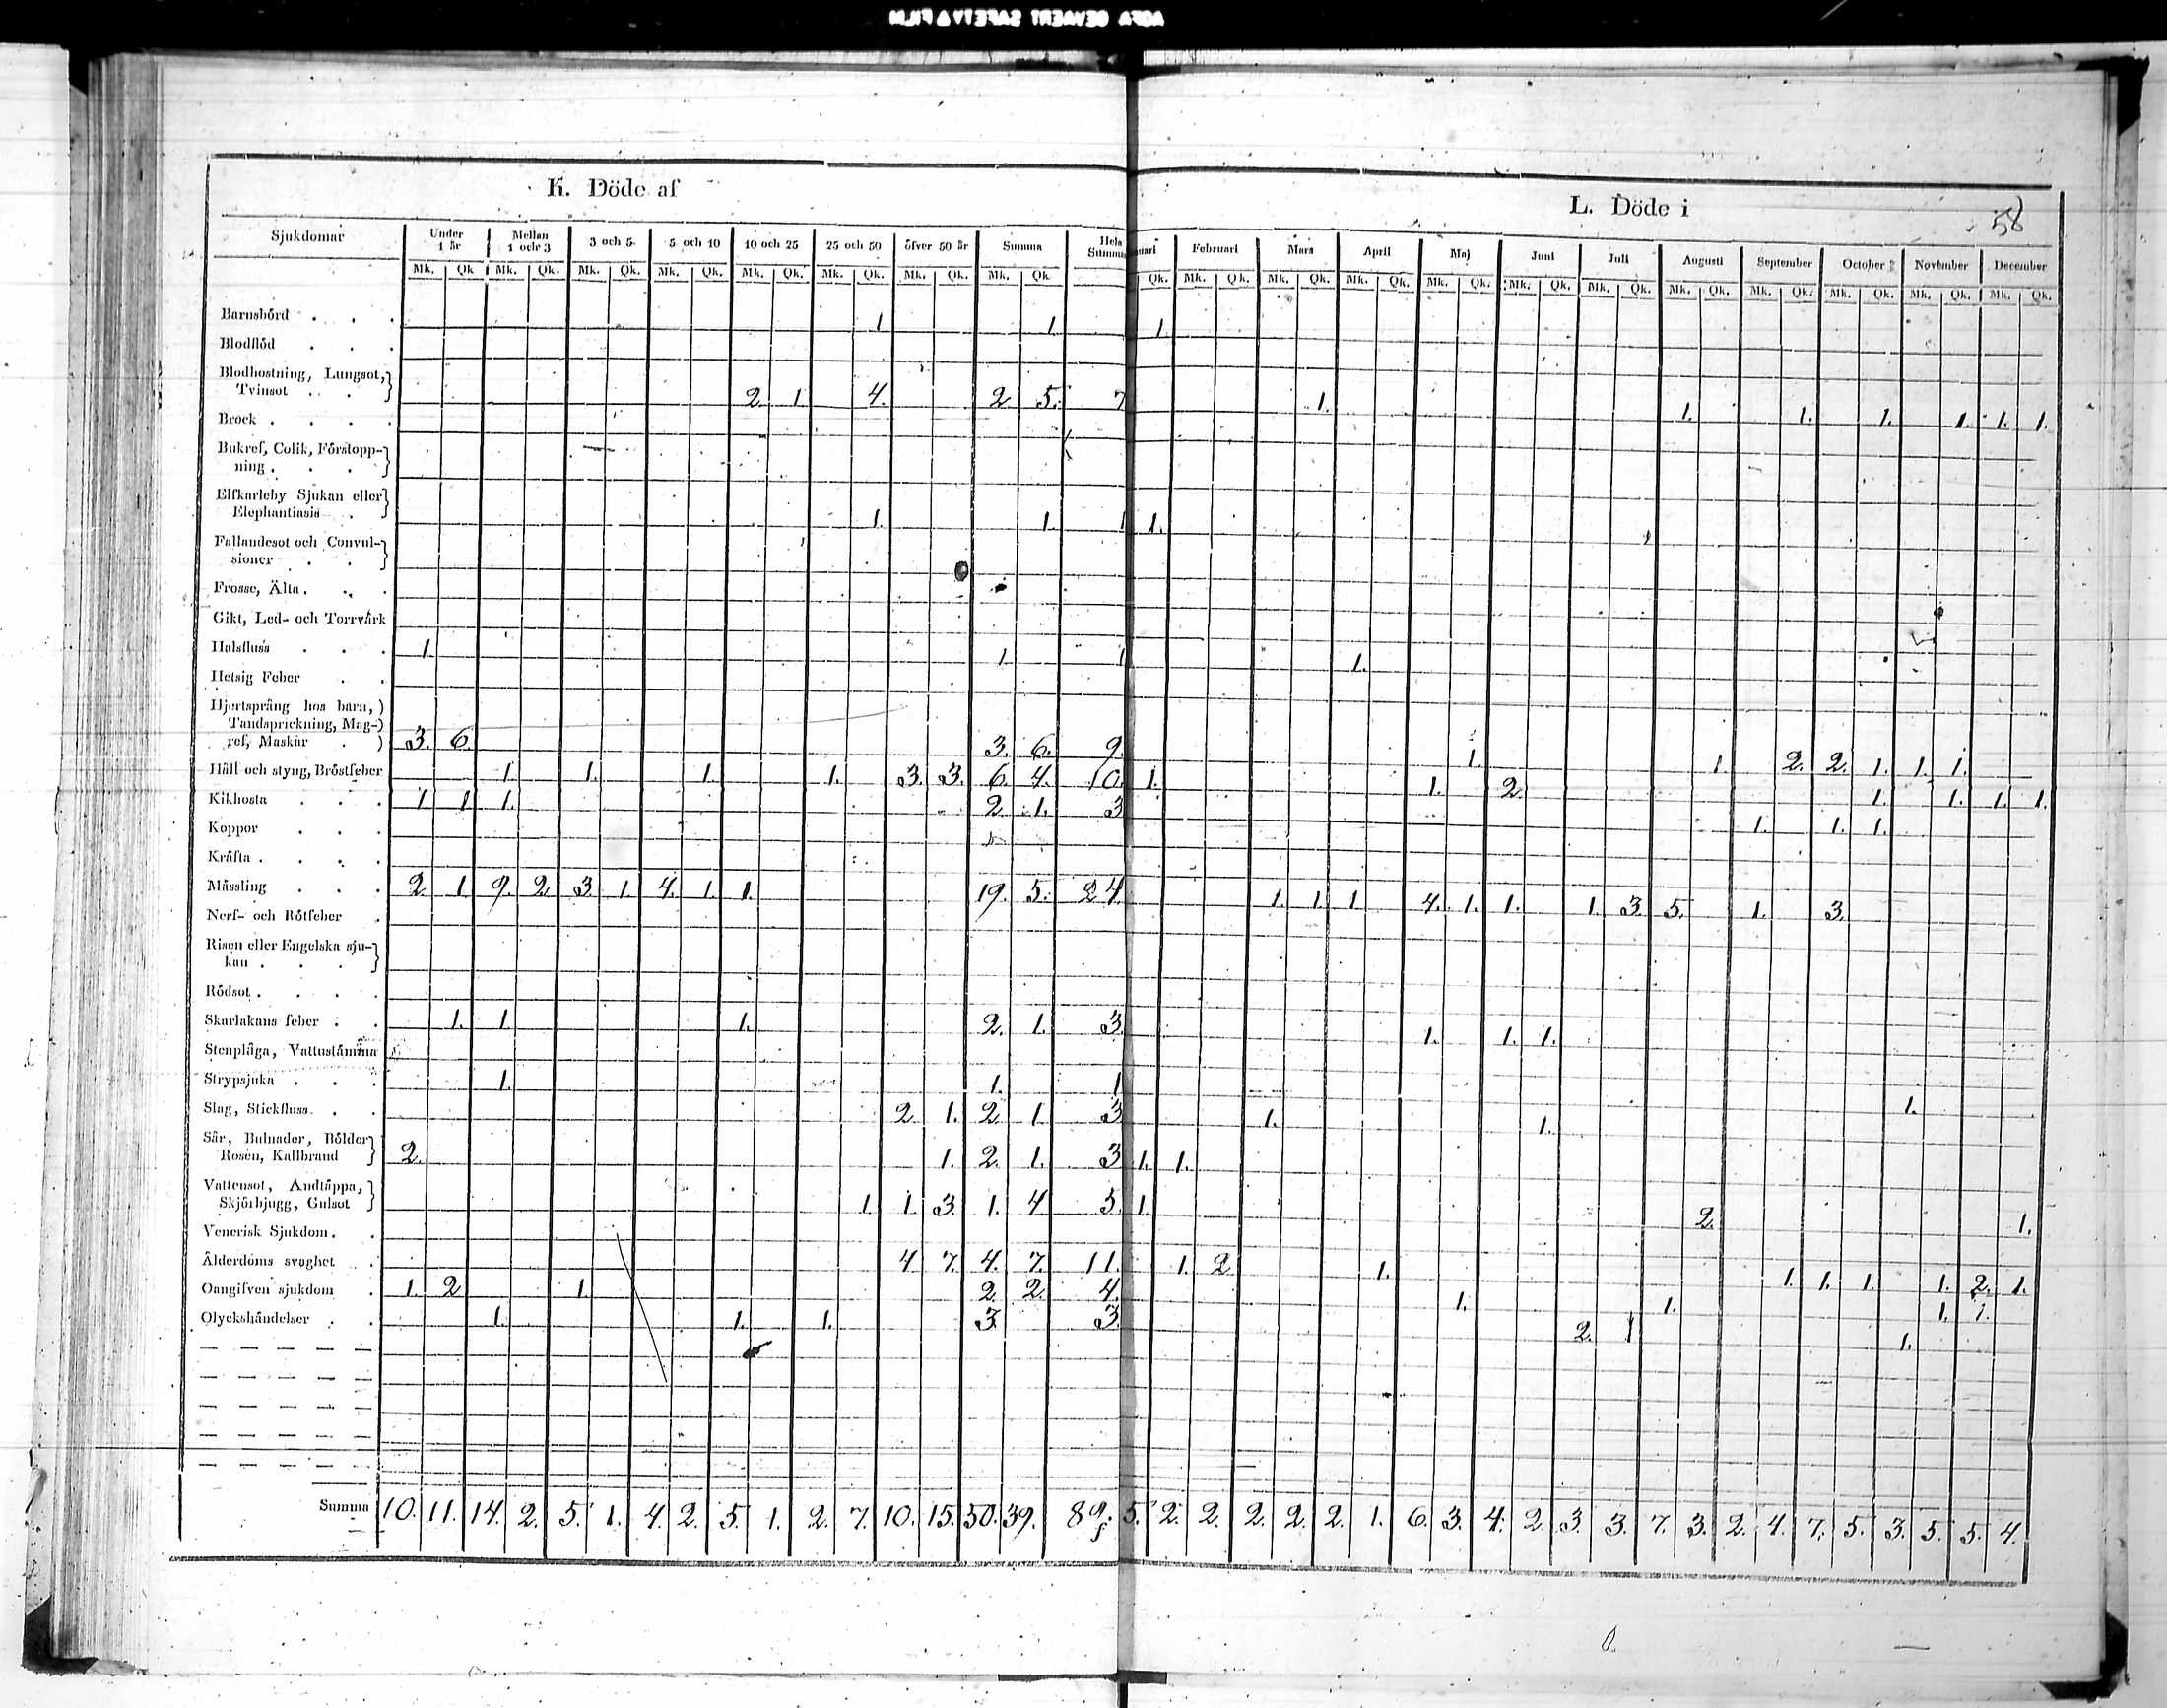 K. Döde af
L. Döde i
58
Sjukdomar Under 1 år Mellan 1 och 3 3 och 5 5 och 10 10 och 25 25 och 50 öfver 50 år Summa Hela Summa
uari Februari Mars April Maj Juni Juli Augusti September October November December
Mk. Qk Mk. Qk. Mk. Qk. Mk. Qk. Mk. Qk. Mk. Qk. Mk. Qk. Mk. Qk.
Qk. Mk. Qk. Mk. Qk. Mk. Qk. Mk. Qk. Mk. Qk. Mk. Qk. Mk. Qk. Mk. Qk. Mk. Qk. Mk. Qk. Mk. Qk.
Barnsbörd . . . 1 1 1
Blodflöd . . .
Blodhostning, Lungsot,
Tvinsot . . 2. 1. 4. 2 5. 7 1. 1. 1. 1. 1. 1. 1.
Brock . . . .
Bukref, Colik, Förstopp-
ning . . .
Elfkarleby Sjukan eller
Elephantiasis . 1. 1. 1 1.
Fallandesot och Convul-
sioner . .
Frosse, Älta . . .
Gikt, Led- och Torrvärk
Halsfluss . . . 1 1 1 1.
Hetsig Feber . .
Hjertsprång hos barn,
Tandsprickning, Mag-
ref, Maskar . 3. 6. 3. 6. 9. 1. 1. 2. 2. 1. 1. 1.
Håll och styng, Bröstfeber 1. 1. 1. 1. 3. 3. 6. 4. 10. 1. 1. 2. 1. 1. 1. 1.
Kikhosta . . . 1 1 1. 2. 1. 3 1. 1. 1.
Koppor . . .
Kräfta . . . .
Mässling . . . 2 1. 9. 2. 3. 1. 4. 1. 1. 19. 5. 24. 1. 1. 1. 4. 1. 1. 1. 3. 5. 1. 3.
Nerf- och Rötfeber .
Risen eller Engelska sju-
kan . . .
Rödsot . . . .
Skarlakans feber . . 1. 1. 1. 2. 1. 3. 1. 1. 1.
Stenplåga, Vattustämma
Strypsjuka . . . 1. 1. 1 1.
Slag, Stickfluss . . 2. 1. 2. 1. 3 1. 1.
Sår, Bulnader, Bölder
Rosen, Kallbrand 2. 1. 2. 1. 3 1. 1.
Vattensot, Andtäppa,
Skjörbjugg, Gulsot 1. 1. 3. 1. 4 5. 1. 2. 1.
Venerisk Sjukdom . .
Ålderdoms svaghet . 4. 7. 4. 7. 11. 1. 2 1. 1. 1. 1. 1. 2. 1.
Oangifven sjukdom . 1. 2 1. 2. 2. 4. 1. 1. 1. 1.
Olyckshändelser . . 1. 1. 1. 3. 3. 2. 1 1.
Summa 10. 11. 14. 2. 5. 1. 4. 2. 5. 1. 2. 7. 10. 15. 50. 39. 89. 5. 2. 2. 2. 2. 2. 1. 6. 3. 4. 2. 3. 3. 7. 3. 2. 4. 7. 5. 3. 5. 5. 4.